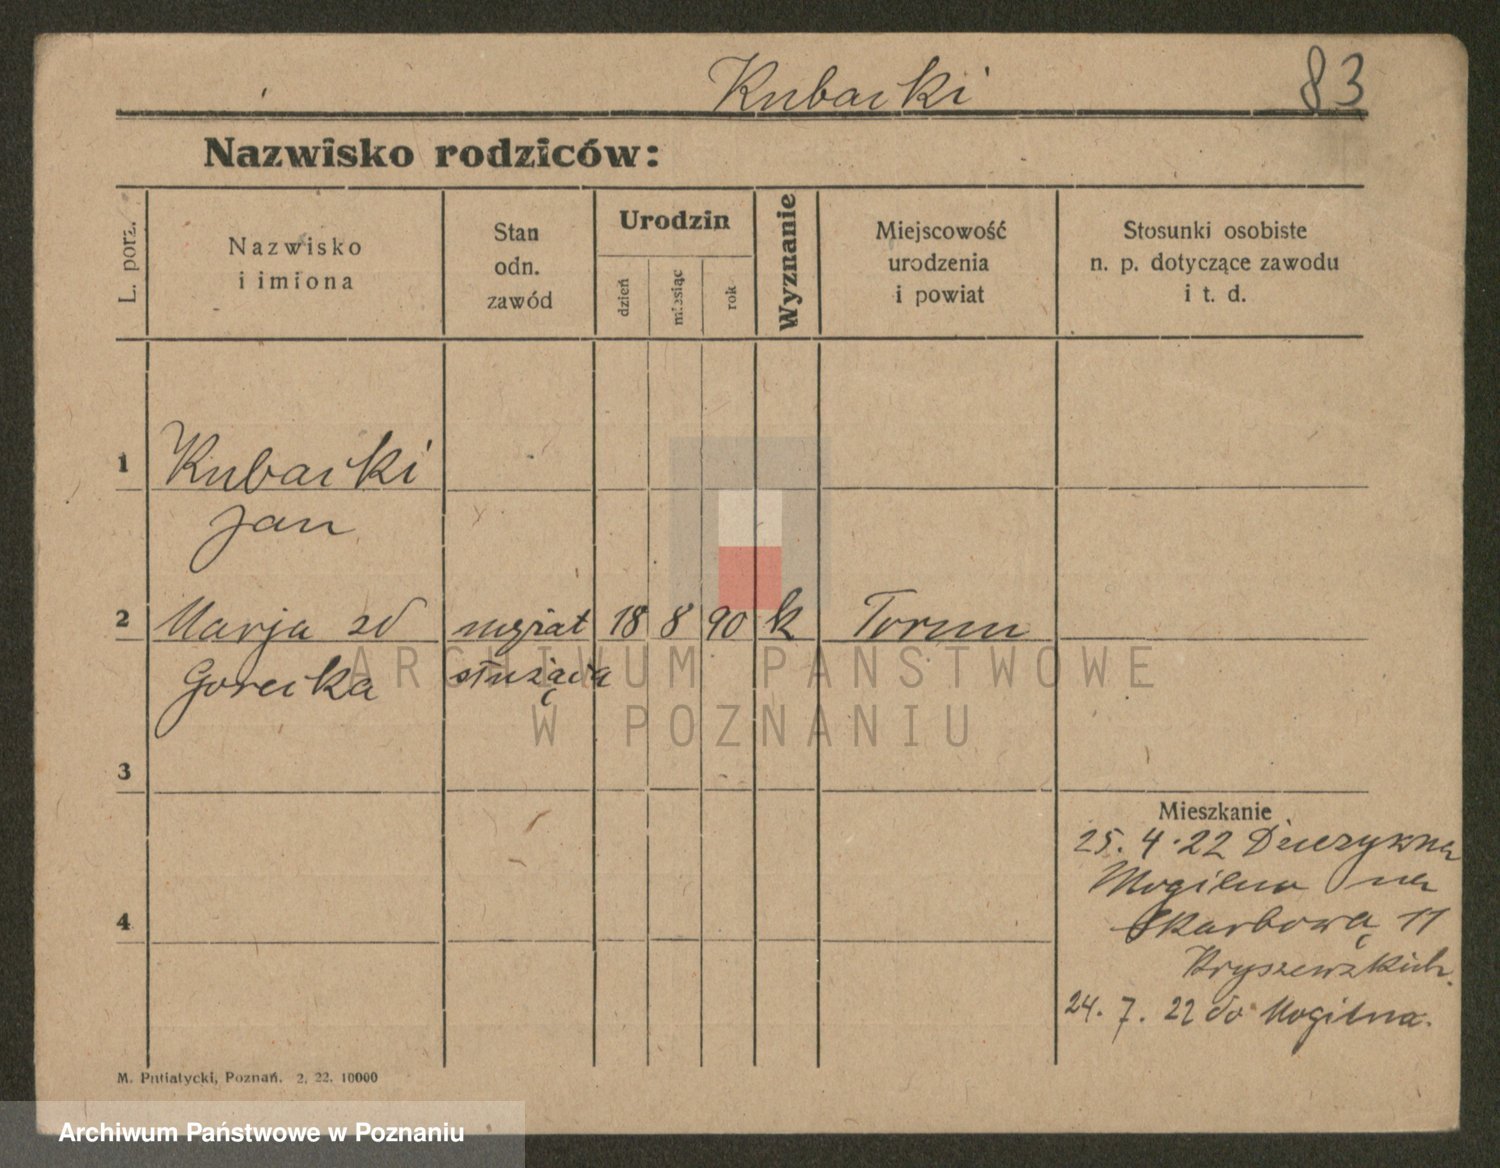 Kubacki
83
Nazwisko rodziców:
L. porz.
Nazwisko
i imiona
Stan
odn.
zawód
Urodzin
dzień
miesiąc
rok
Wyznanie
Miejscowość
urodzenia
i powiat
Stosunki osobiste
n. p. dotyczące zawodu
i t. d.
1
Kubacki
Jan
2
Marja zd
mężat
18
8
90
k
Torun
Gorecka
służąca
ARCHIWUM PAŃSTWOWE
W POZNANIU
3
Mieszkanie
25. 4. 22
Mogilno na
4
Skarbową 11
24. 7. 22 do Mogilna.
M. Putiatycki, Poznań. 2, 22. 10000
Archiwum Państwowe w Poznaniu